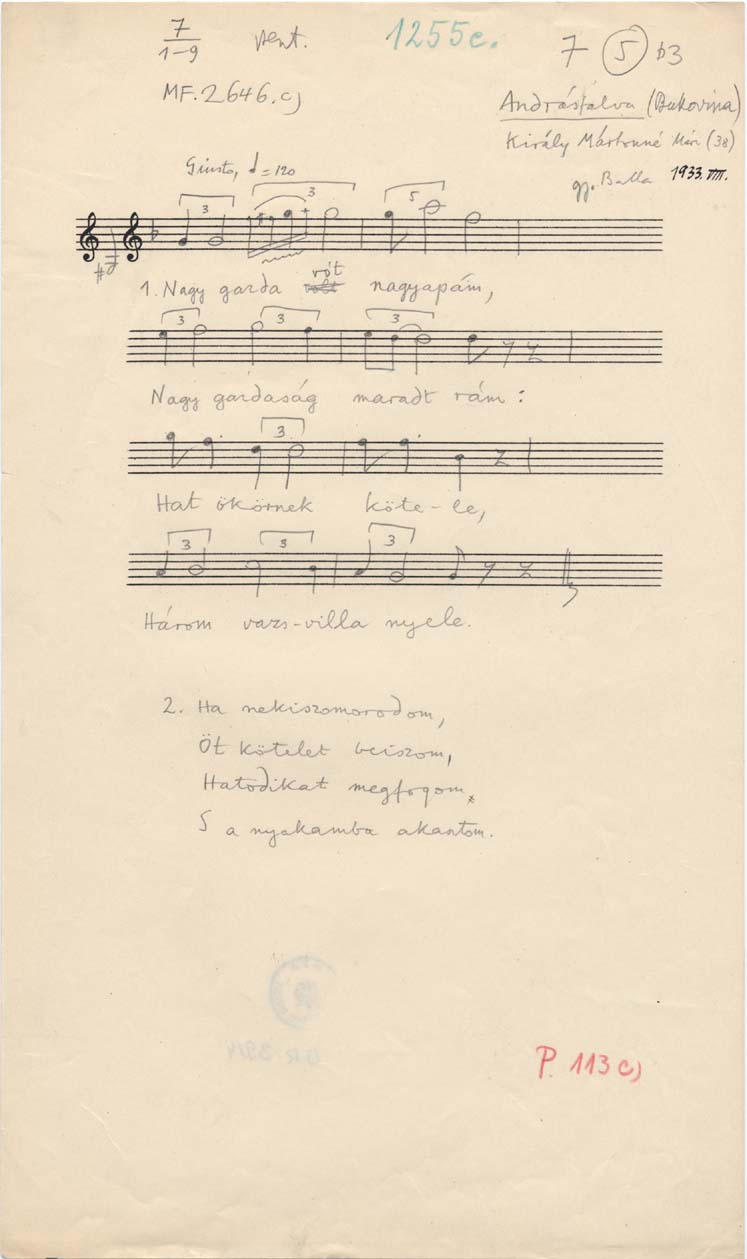 7
1-9
vent.
1255c.
7 5 b3
MF. 2646. c)
Andrásfalva (Bukovina)
Király Mártonné Mári (38)
gy. Balla 1933. VIII.
Giusto, = 120
3 3 5
1. Nagy garda vót nagyapám,
3 3 3
Nagy gardaság maradt rám:
3
Hat ökörnek köte-le,
3 3 3
Három vazs-villa nyele.
2. Ha nekiszomorodom,
Öt kötelet beiszom,
Hatodikat megfogom,
S a nyakamba akasztom.
P. 113 c)